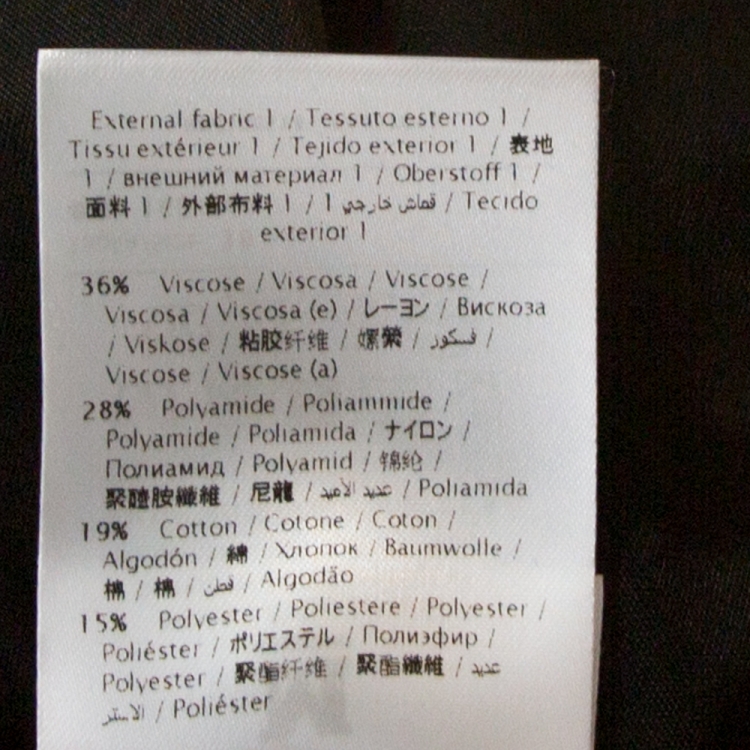 External fabric 1 / Tessuto esterno 1 /
Tissu extérieur 1 / Tejido exterior 1 / 表地
1 / внешний материал 1 / Oberstoff 1 /
面料 1 / 外部布料 1 / قماش خارجي 1 / Tecido
exterior 1
36% Viscose / Viscosa / Viscose /
Viscosa / Viscosa (e) / レーヨン / Вискоза
/ Viskose / 粘胶纤维 / 嫘縈 / فسكوز /
Viscose / Viscose (a)
28% Polyamide / Poliammide /
Polyamide / Poliamida / ナイロン /
Полиамид / Polyamid / 锦纶 /
聚醯胺纖維 / 尼龍 / عديد الأميد / Poliamida
19% Cotton / Cotone / Coton /
Algodón / 綿 / Хлопок / Baumwolle /
棉 / 棉 / قطن / Algodão
15% Polyester / Poliestere / Polyester /
Poliéster / ポリエステル / Полиэфир /
Polyester / 聚酯纤维 / 聚酯纖維 / عديد
الاستر / Poliéster